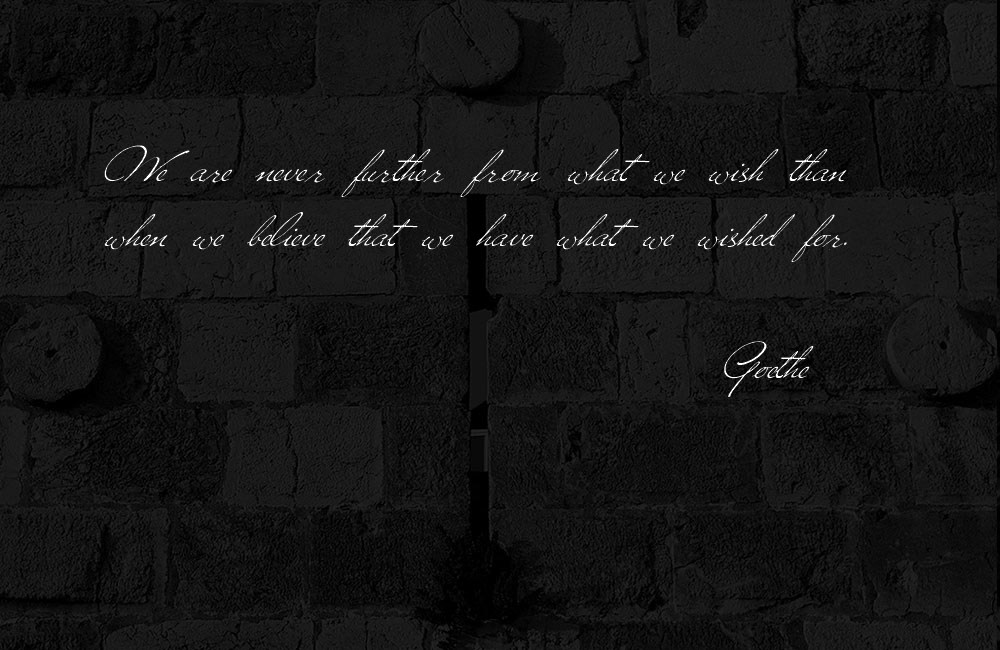 We are never further from what we wish than
when we believe that we have what we wished for.
Goethe